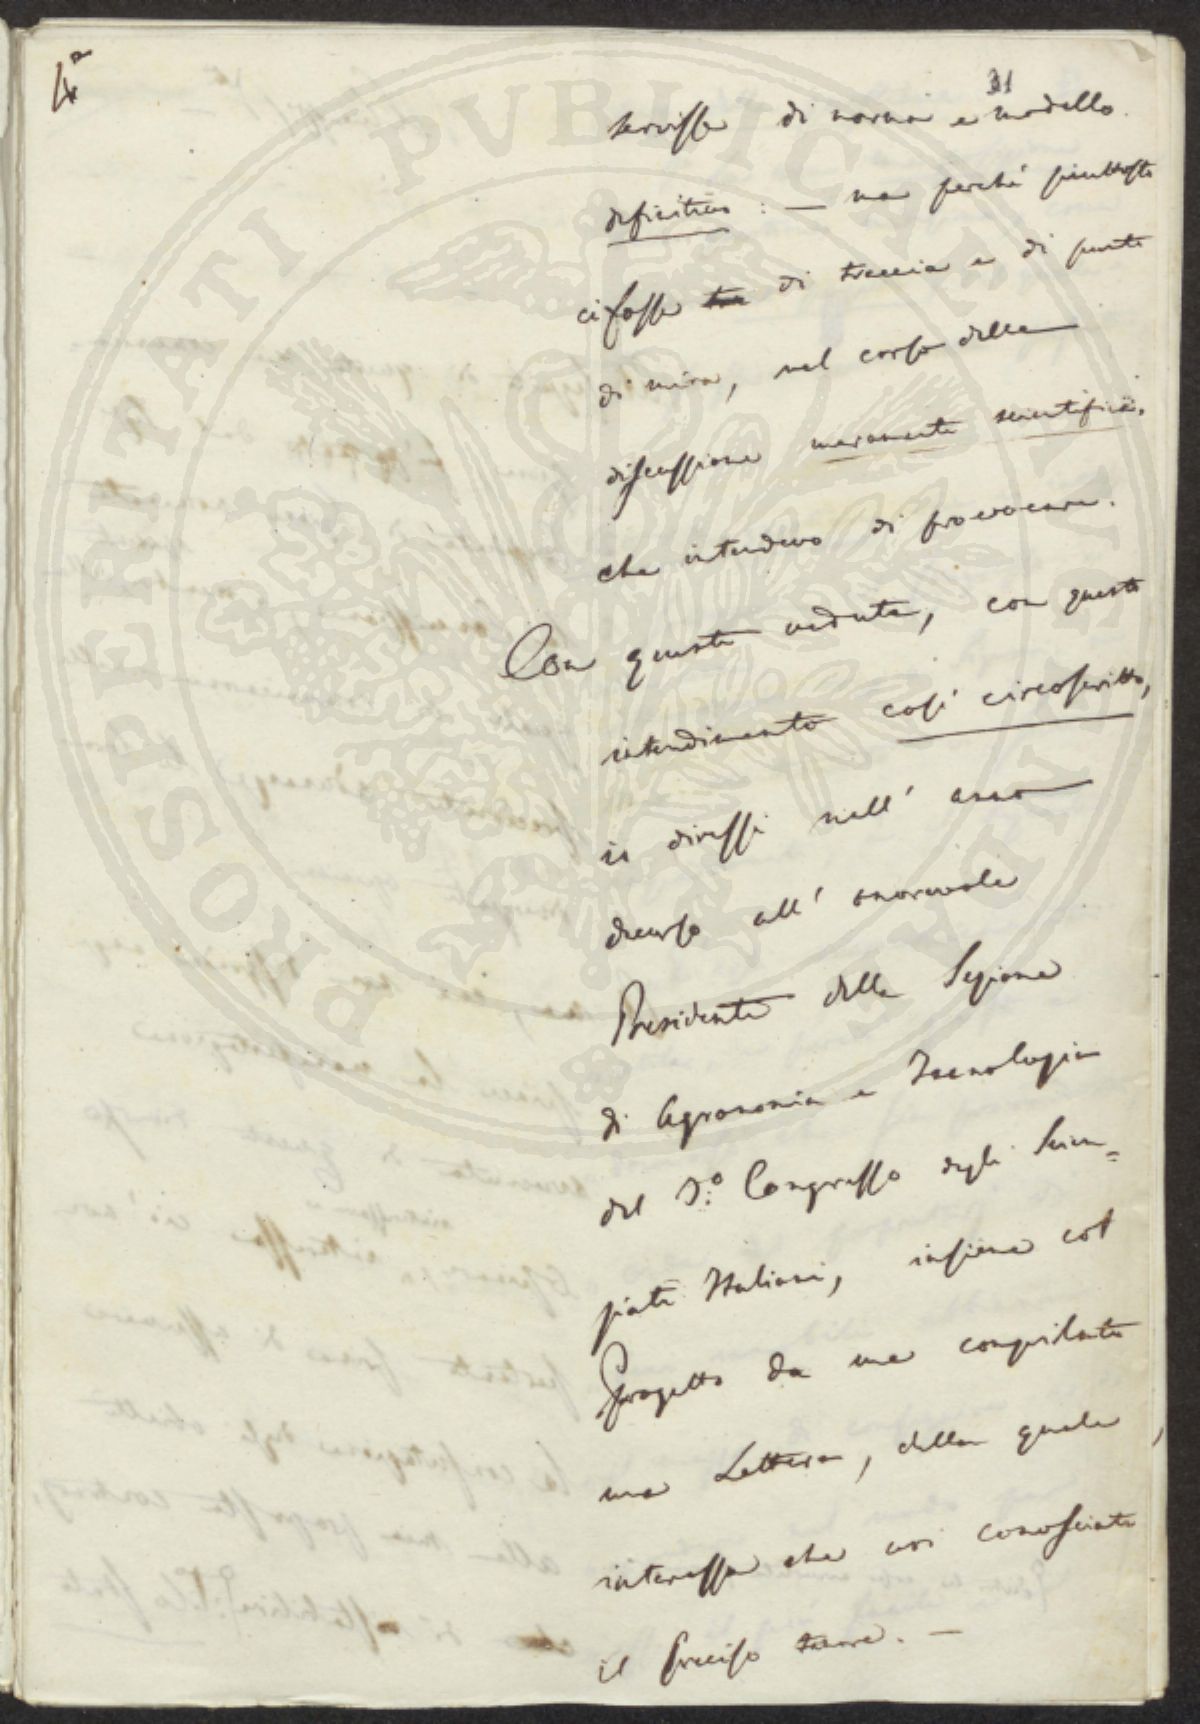 4ª
31
servisse di norma e modello
definitivo : — ma perchè piuttosto
ci fosse di traccia e di punto
di mira, nel corso della
discussione meramente scientifica,
che intendevo di provocare.
Con queste vedute, con questo
intendimento così circoscritto,
io diressi nell' anno
decorso all' onorevole
Presidente della Sezione
di Agronomia e Tecnologia
del 7.º Congresso degli Scien=
ziati Italiani, insieme col
Progetto da me compilato
una Lettera, della quale
interessa che voi conosciate
il preciso tenore. —
PROSPERITATI PUBLICAE AUGENDAE